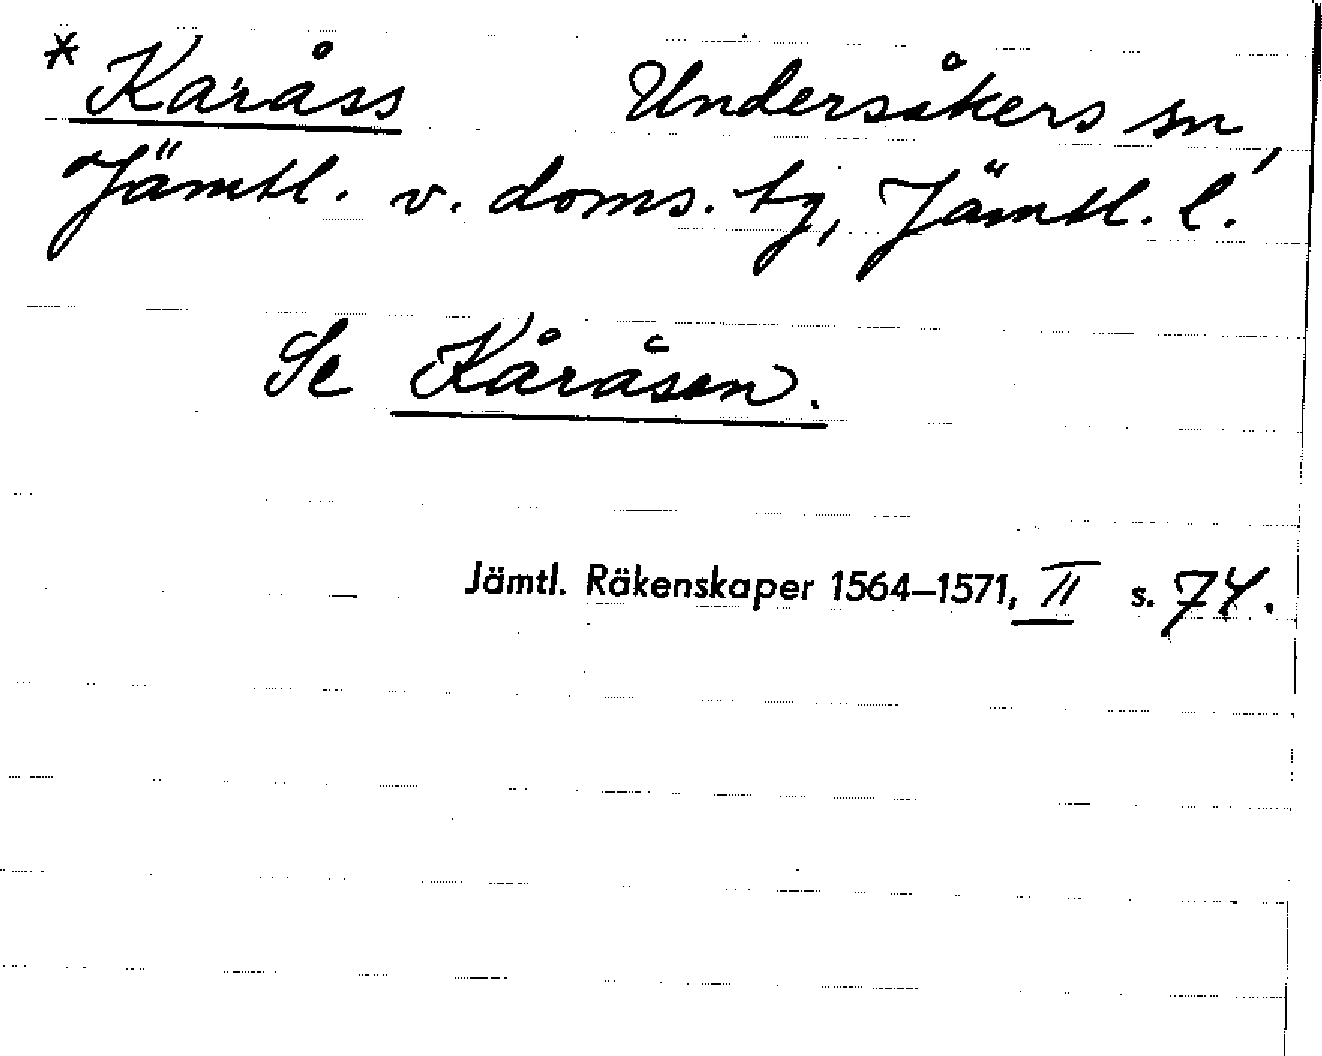 * Karåss Undersåkers sn,
Jämtl. v. doms. tg, Jämtl. l.
Se Kåråsen.
Jämtl. Räkenskaper 1564–1571, II s. 74.